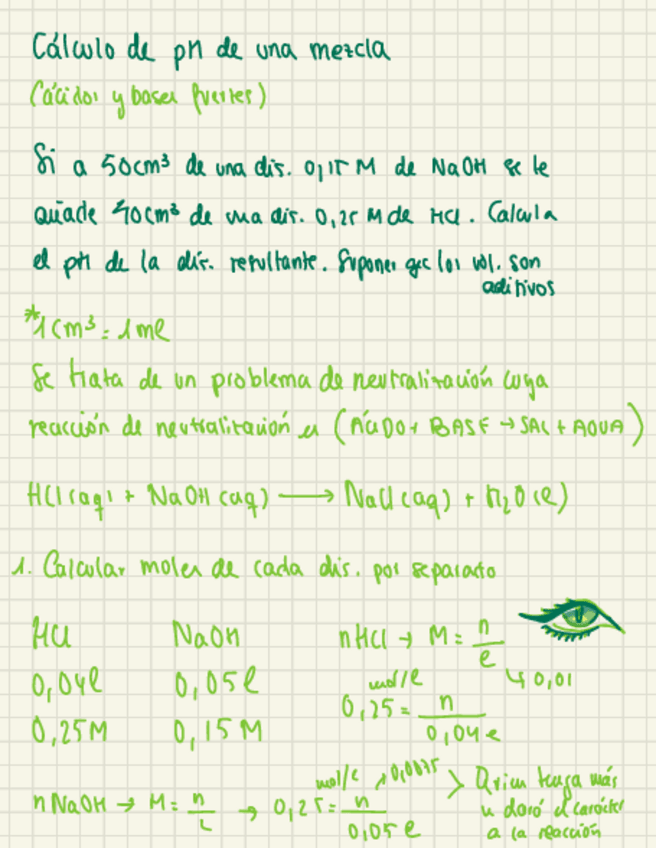 Cálculo de pH de una mezcla
(ácidos y bases fuertes)
Si a 50cm³ de una dis. 0,15 M de NaOH se le
añade 40cm³ de una dis. 0,25 M de HCl. Calcula
el pH de la dis. resultante. Suponer que los vol. son
aditivos
*1cm³ = 1ml
Se trata de un problema de neutralización cuya
reacción de neutralización es (ÁCIDO + BASE → SAL + AGUA)
HCl (aq) + NaOH (aq) → NaCl (aq) + H₂O (l)
1. Calcular moles de cada dis. por separado
HCl NaOH nHCl → M = n/l
↳ 0,01
0,04l 0,05l mol/l
0,25 = n/0,04l
0,25M 0,15M
nNaOH → M = n/L → 0,25 = n/0,05l mol/l ↗0,0075
> Quien tenga más
n dará el carácter
a la reacción